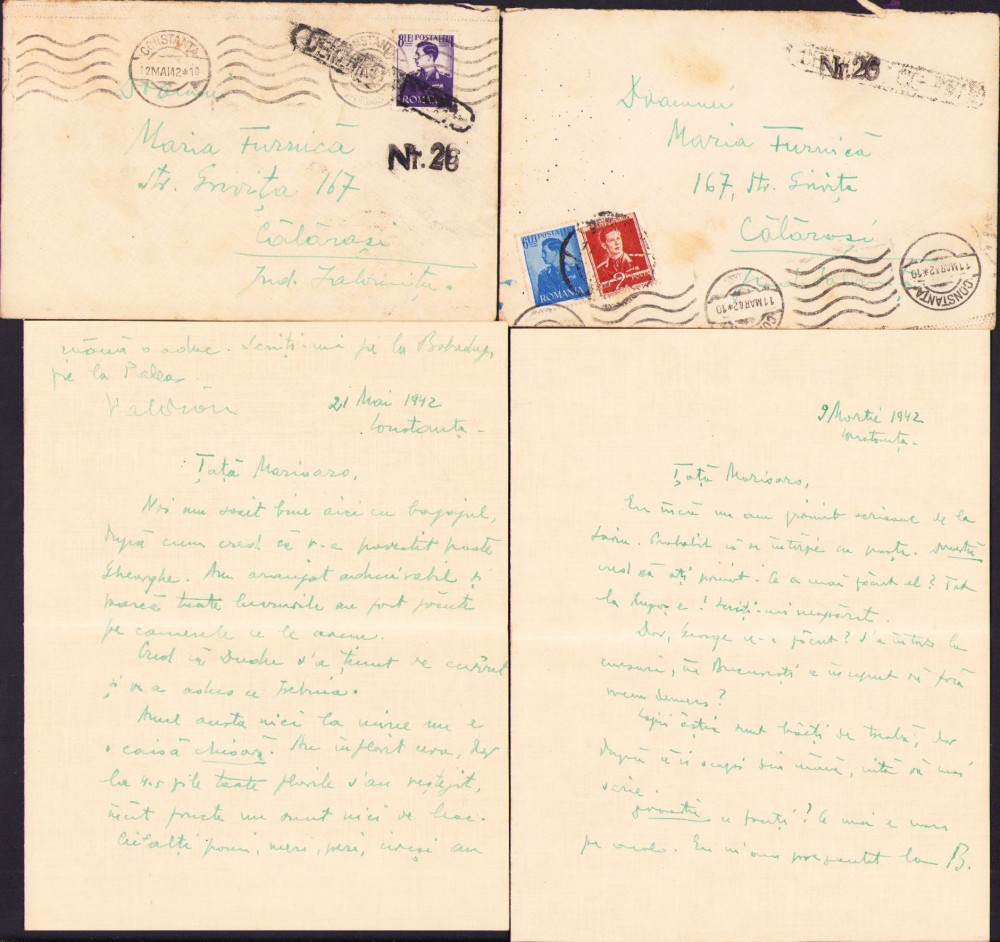 CONSTANȚA
22MAI42*10
8 LEI POSTA
ROMANIA
Nr. 26
Doamnei
Maria Furnică
Str. Grivița 167
Călărași
Jud. Ialomița.
Nr. 26
Doamnei
Maria Furnică
167, Str. Grivița
Călărași
6 LEI POSTA
ROMANIA
11MAR42*10
CONSTANȚA
11MAR42*10
mână o aduc. Scriți-mi pe la
pe la
21 Mai 1942
Constanța -
Țață Marioaro,
Noi am sosit bine aici cu bagajul,
după cum cred că v-a povestit poate
Gheorghe. Am aranjat admirabil și
parcă toate lucrurile au fost făcute
pe camerele ce le avem.
Cred că Duduc s'a ținut de cuvânt
și v-a adus ce trebuia.
Anul acesta nici la mine nu e
o caisă chioară. Au înflorit ceva, dar
la 4-5 zile toate florile s'au veștejit,
încât fructe nu sunt nici de leac.
Ceilalți pomi, meri, peri, cireși au
9 Martie 1942
Constanța -
Țață Marioaro,
Eu încă nu am primit scrisoare de la
Probabil că se întârzie cu poșta.
cred că ați primit. Ce a mai făcut el? Tot
la e! Scriți-mi neapărat.
Dar, George ce-a făcut? S'a întors la
cursuri, în București a început să facă
vreun demers?
Copii ăștia sunt băieți de treabă, dar
după ce îi scapi din mână, uită să mai
scrie.
ce faceți? Ce mai e nou
pe acolo. Eu m'am prezentat la B.